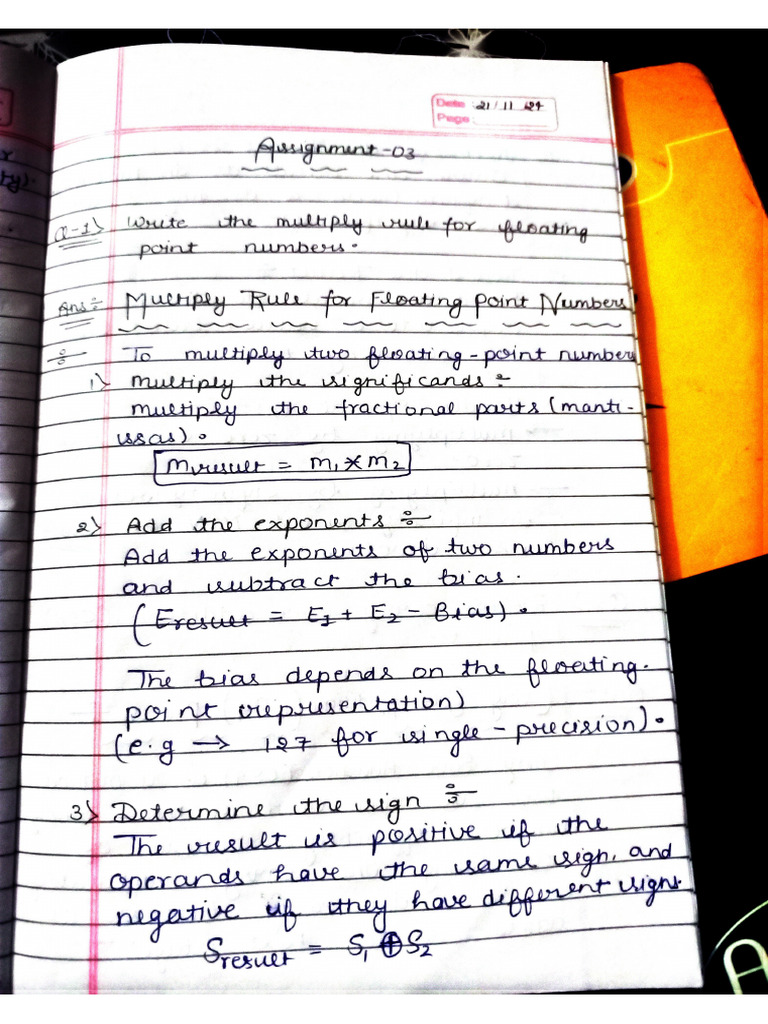 Date : 21/11/24
Page :
Assignment-03
Q-1) Write the multiply rule for floating
point numbers.
Ans÷ Multiply Rule for Floating Point Numbers
÷ To multiply two floating-point numbers
1) multiply the significands ÷
multiply the fractional parts (manti-
ssas).
Mresult = M1 * M2
2) Add the exponents ÷
Add the exponents of two numbers
and subtract the bias.
(Eresult = E1 + E2 - Bias).
The bias depends on the floating-
point representation)
(e.g → 127 for single-precision).
3) Determine the sign ÷
The result is positive if the
operands have the same sign, and
negative if they have different signs.
Sresult = S1 ⊕ S2